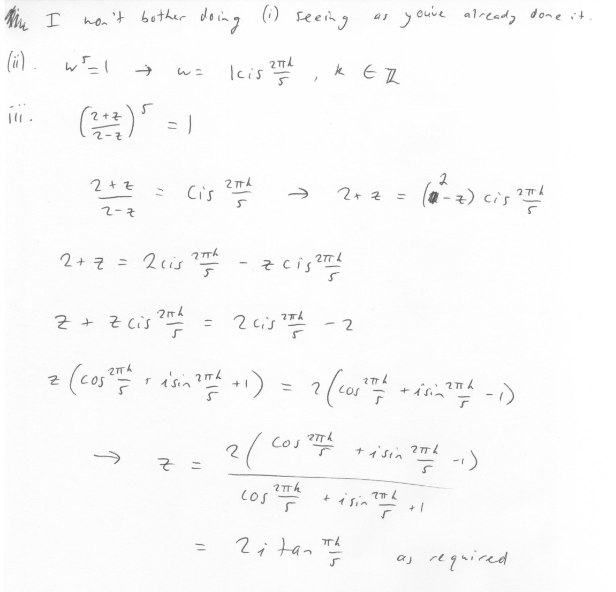 I won't bother doing (i) seeing as you've already done it.
(ii). w^5 = 1 → w = 1cis 2πk/5 , k ∈ ℤ
iii. ((2+z)/(2-z))^5 = 1
(2+z)/(2-z) = cis 2πk/5 → 2+z = (2-z) cis 2πk/5
2+z = 2cis 2πk/5 - z cis 2πk/5
z + z cis 2πk/5 = 2 cis 2πk/5 - 2
z (cos 2πk/5 + i sin 2πk/5 + 1) = 2 (cos 2πk/5 + i sin 2πk/5 - 1)
→ z = 2 ( cos 2πk/5 + i sin 2πk/5 - 1) / (cos 2πk/5 + i sin 2πk/5 + 1)
= 2i tan πk/5 as required